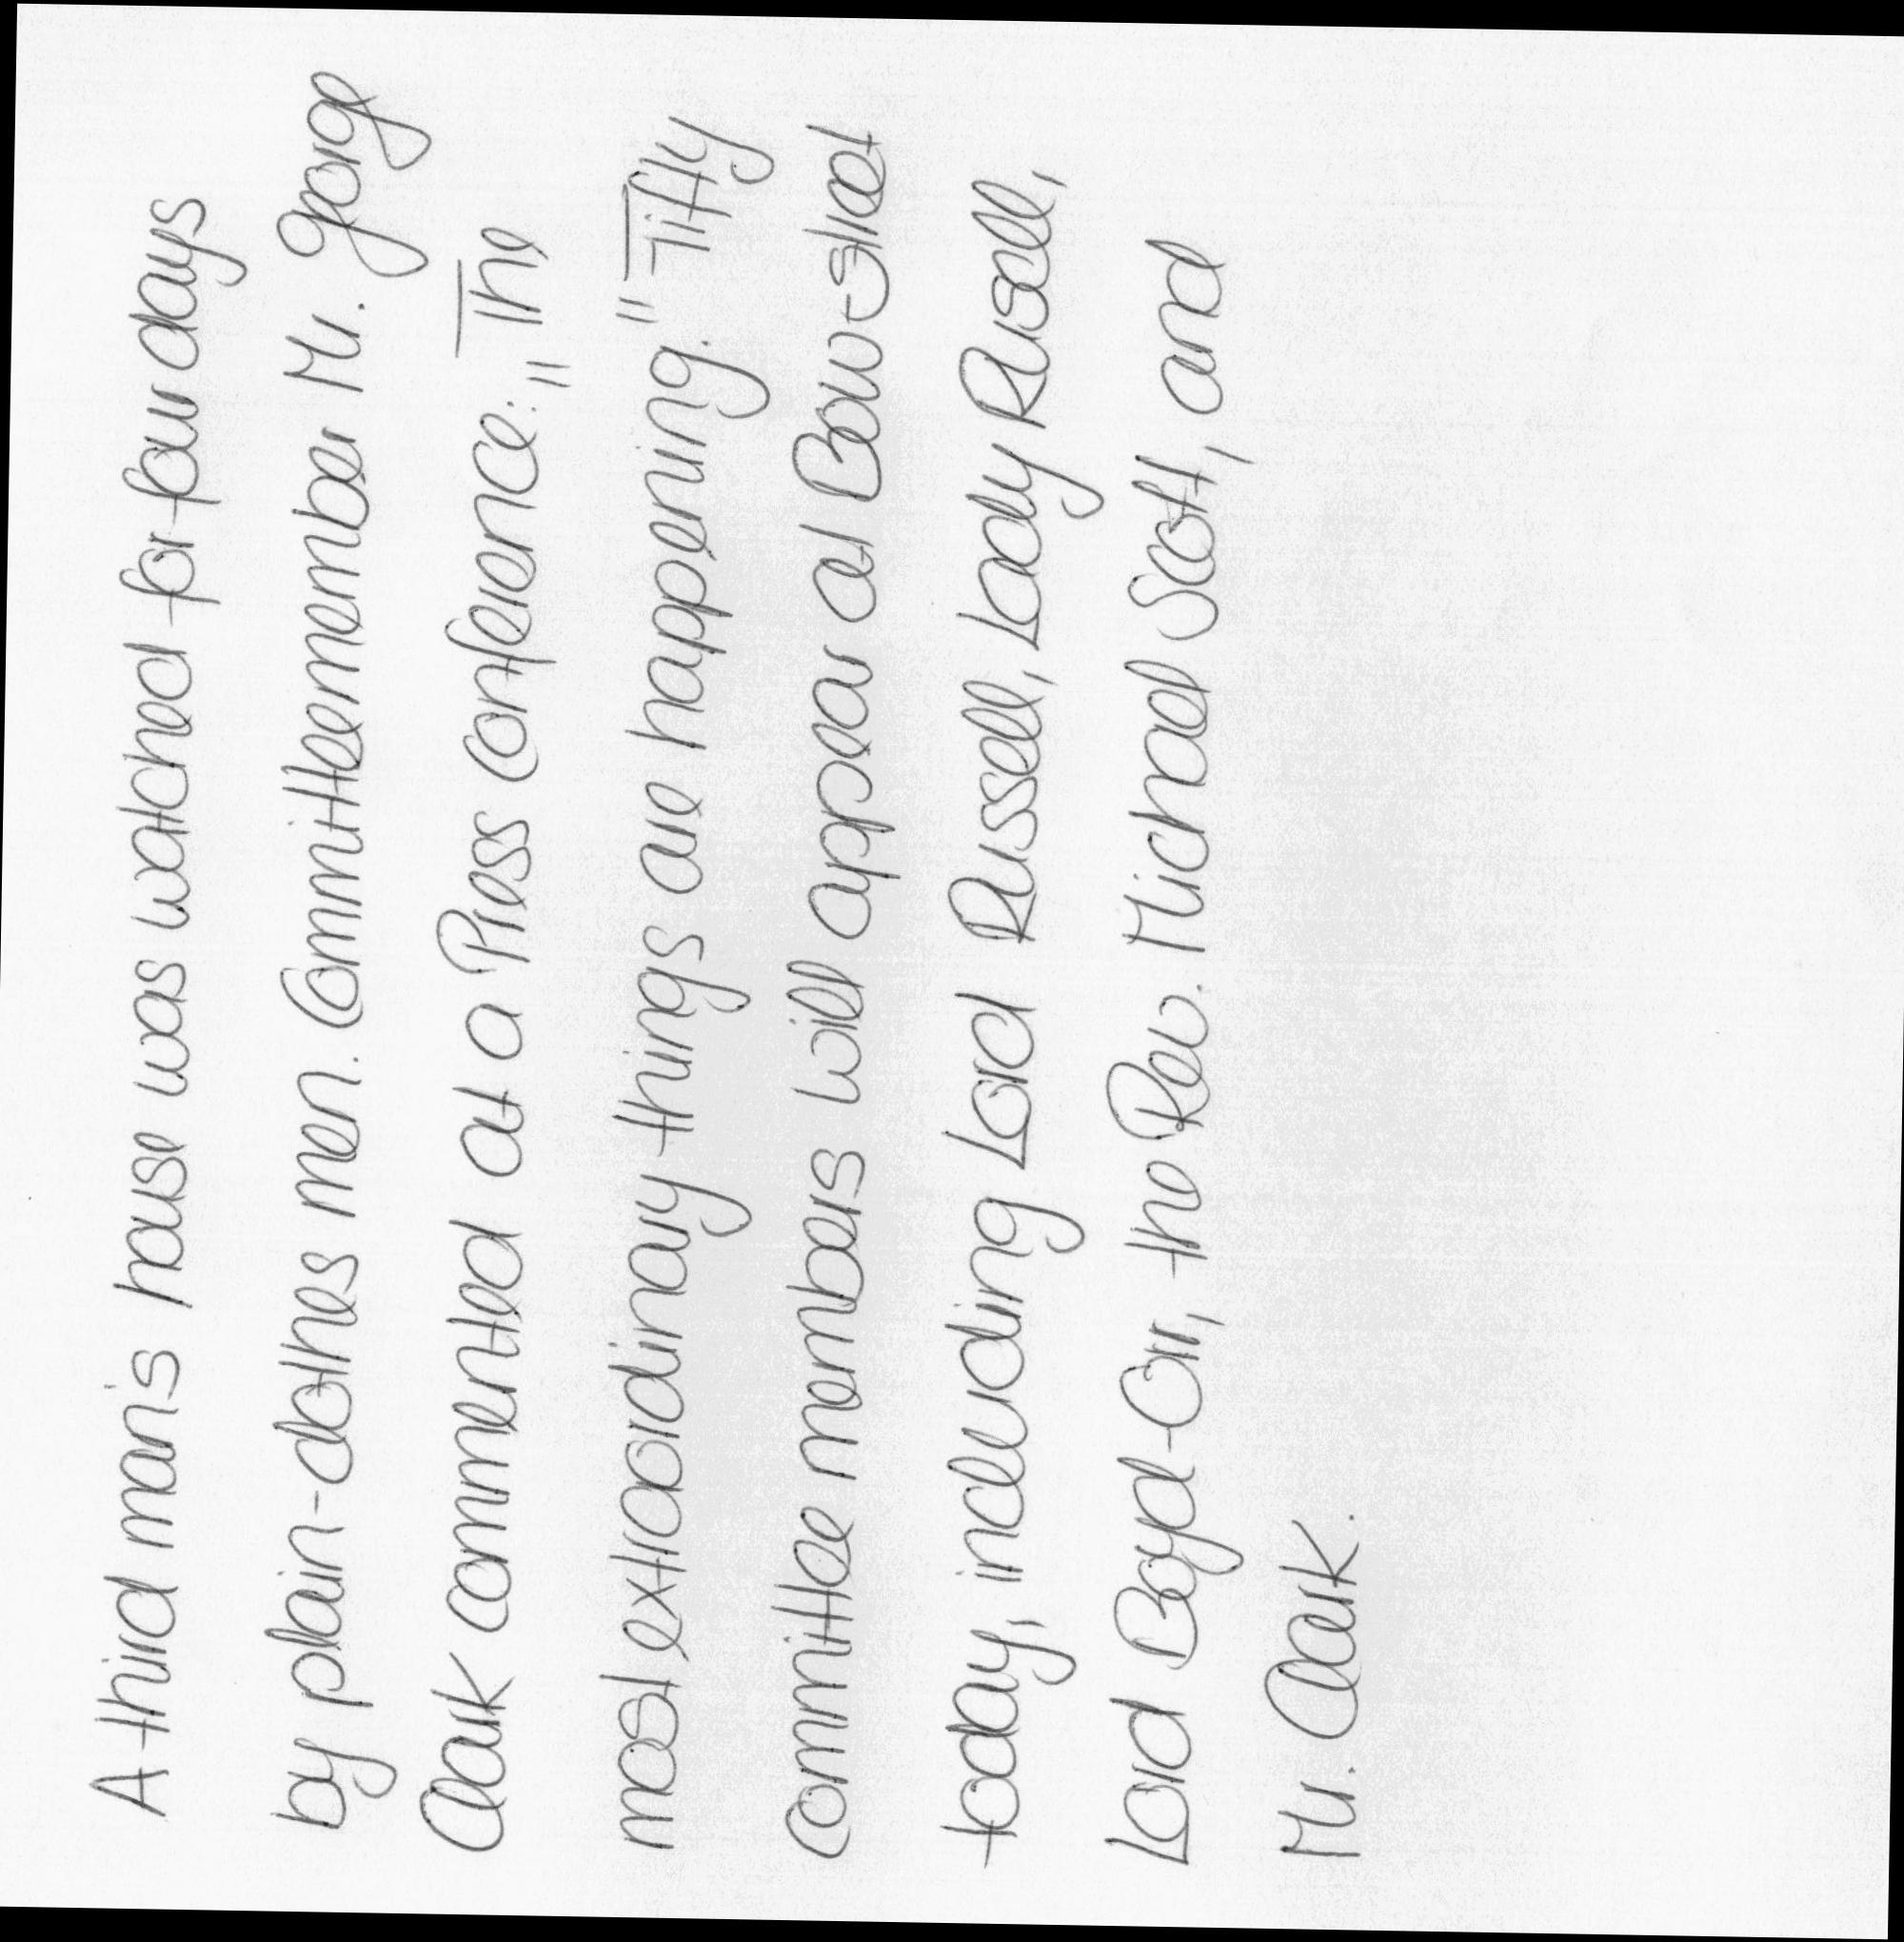 A third man's house was watched for four days
by plain-clothes men. Committeemember Mr. George
Clark commented at a Press Conference: "The
most extraordinary things are happening." Fifty
committee members will appear at Bow-street
today, including Lord Russell, Lady Russell,
Lord Boyd-Orr, the Rev. Michael Scott, and
Mr. Clark.